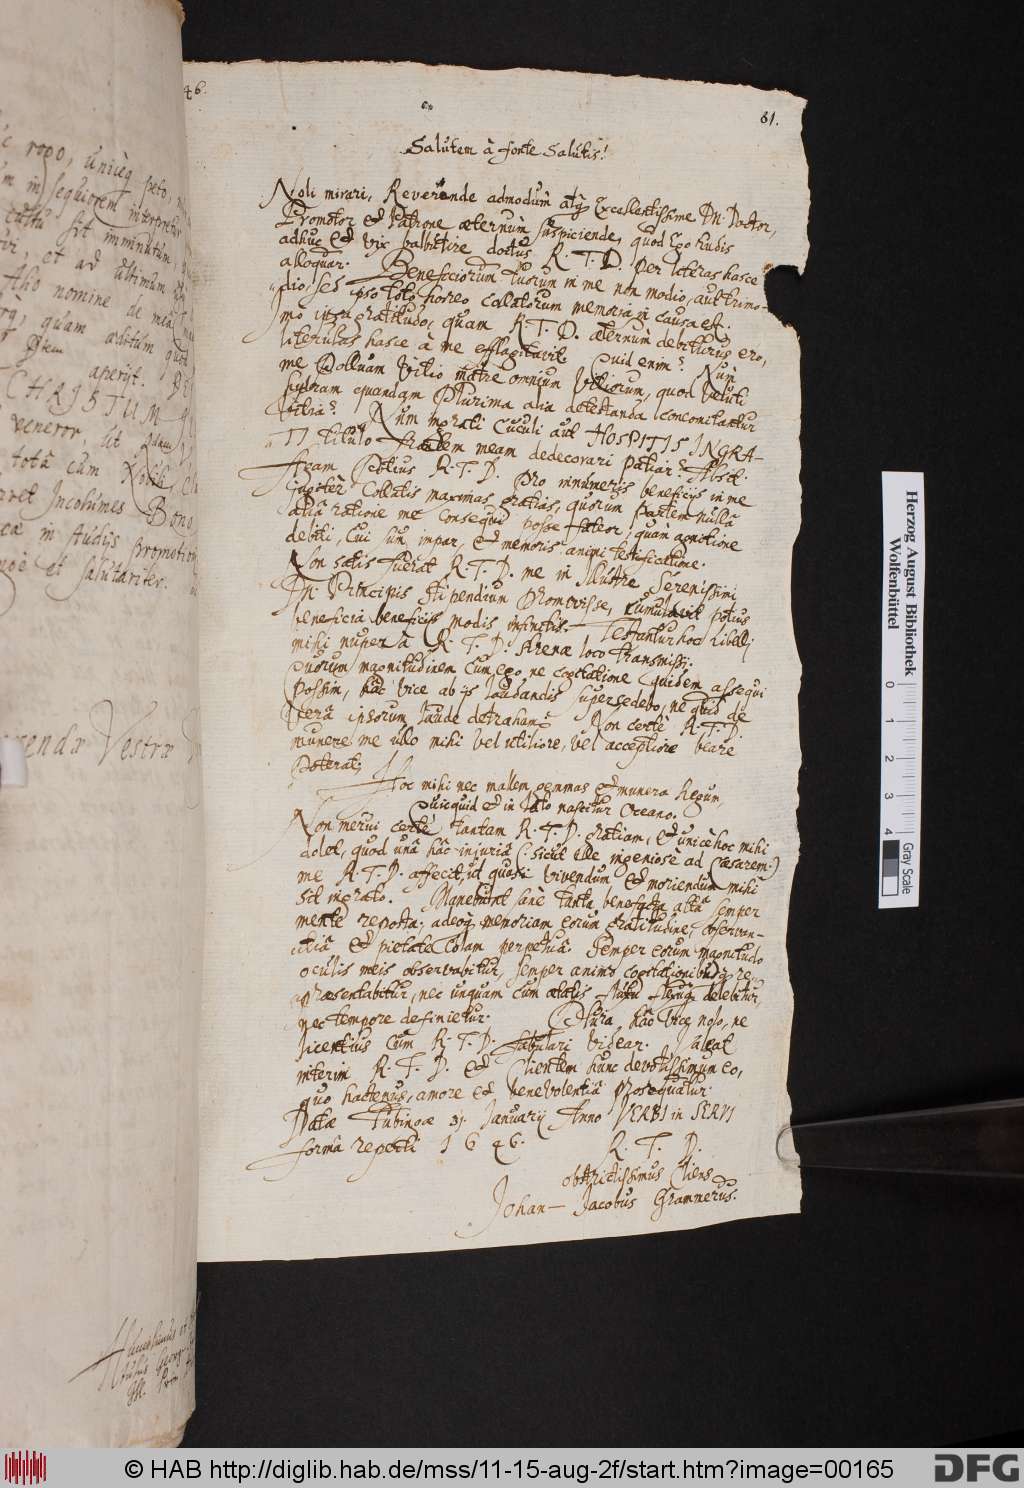 46.
81.
Salutem à fonte Salutis!
Noli mirari, Reverende admodum atq; Excellentissime Dn. Doctor,
Promotor et Patrone æternùm suspiciende, quod ego rudis
adhuc et vix balbutire doctus R. T. D. per literas hasce
alloquar. Beneficiorum tuorum in me non modio, aut trimo-
dio, sed ipso toto horreo collatorum memoria in causa est.
imo ipsa gratitudo, quam R. T. D. æternùm debiturus ero,
literulas hasce à me efflagitavit. Quid enim? Num
me polluam vitio matre omnium vitiorum, quod veluti
sydram quandam plurima alia detestanda concomitantur
vitia? Num ingrati Cuculi aut HOSPITIS INGRA-
TI titulo frontem meam dedecorari patiar? Absit.
Agam potius R. T. D. pro innumeris beneficijs in me
jugiter collatis maximas gratias, quorum partem nullâ
aliâ ratione me consequi posse fateor, quàm agnitione
debiti, cui sum impar, et memoris animi testificatione.
Non satis fuerat R. T. D. me in Illustre Serenissimi
Dn. Principis stipendium promovisse, cumulavit potius
beneficia beneficijs modis infinitis. Testantur hoc libelli
mihi nuper à R. T. D. strenæ loco transmissi.
Quorum magnitudinem cum ego ne cogitatione quidem assequi
possim, hâc vice ab ijs laudandis supersedebo, ne quid de
verâ ipsorum laude detraham. Non certè R. T. D.
munere me ullo mihi vel utiliore, vel acceptiore beare
poterat;
Hoc mihi nec mallem gemmas et munera Regum,
Quicquid et in lato nascitur Oceano.
Non merui certè tantam R. T. D. gratiam, et unicè hoc mihi
dolet, quod unâ hâc injuriâ (: sicut ille ingeniosè ad Cæsarem:)
me R. T. D. affecit, ut quasi vivendum et moriendum mihi
sit ingrato. Manebunt sanè tanta benefacta altâ semper
mente reposta; adeoq; memoriam eorum gratitudine, observan-
tiâ et pietate colam perpetuâ. Semper eorum magnitudo
oculis meis observabitur, semper animo cogitationibusq; re-
præsentabitur, nec unquam cum ætatis fluxu fluxuq; delebitur,
nec tempore definietur. Plura hâc vice nolo, ne
licentius cum R. T. D. fabulari videar. Valeat
interim R. T. D. et Clientem hunc devotissimum eo,
quo hactenus, amore et benevolentiâ prosequatur.
Datæ Tubingæ 31. Januarij Anno VERBI in SERVI
formâ reperti 1646.
R. T. D.
obstrictissimus Cliens
Johan- Jacobus Grammerus.
c rogo, unicèq; peto,
in sequiorem interpretetur
sit imminutum,
et ad ultimum
Aho nomine de meâ
quam aditum
aperist.
CHRISTUM
veneror, ut
totâ cum Nobili
Incolumes Bono
in studijs promotion
et salutariter.
rendæ Vestræ
Herzog August Bibliothek
Wolfenbüttel
0 1 2 3 4
Gray Scale
© HAB http://diglib.hab.de/mss/11-15-aug-2f/start.htm?image=00165
DFG